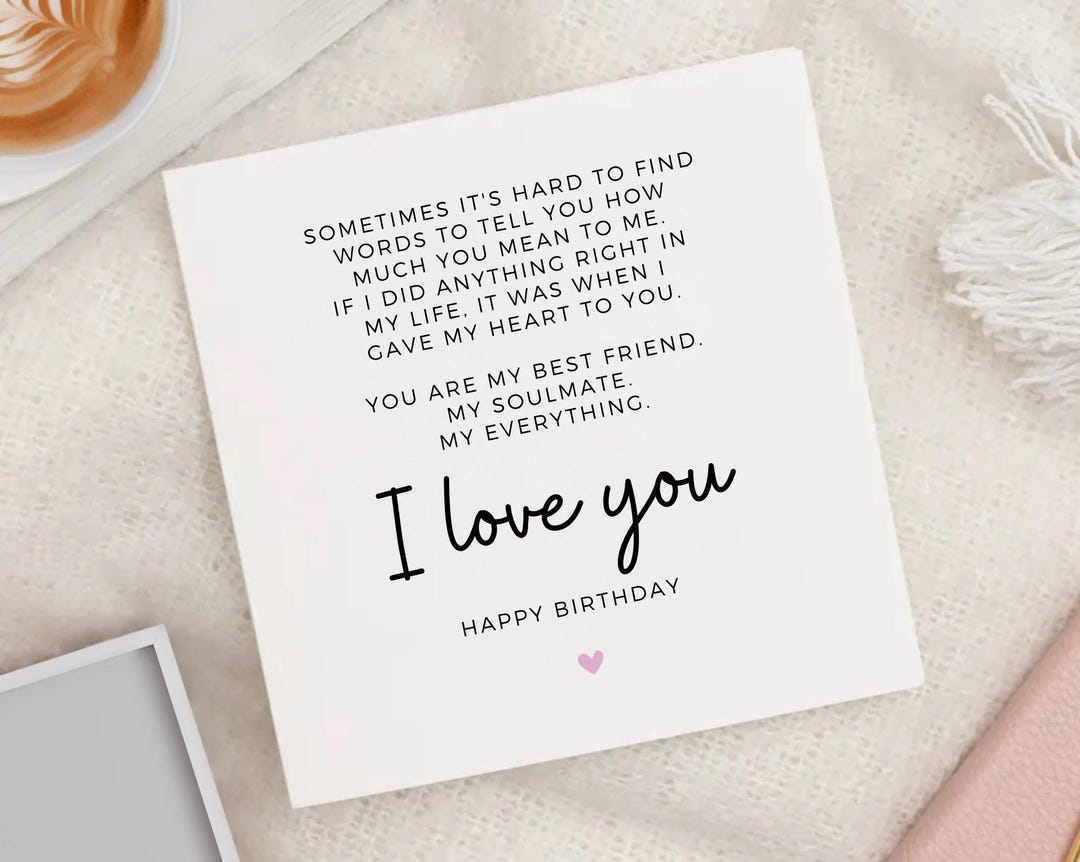 SOMETIMES IT'S HARD TO FIND
WORDS TO TELL YOU HOW
MUCH YOU MEAN TO ME.
IF I DID ANYTHING RIGHT IN
MY LIFE, IT WAS WHEN I
GAVE MY HEART TO YOU.
YOU ARE MY BEST FRIEND.
MY SOULMATE.
MY EVERYTHING.
I love you
HAPPY BIRTHDAY